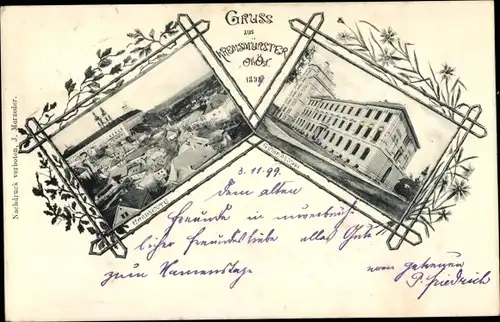 GRUSS
aus
KREMSMÜNSTER
Ob. Öst.
1898
Nachdruck verboten. J. Marzoder.
3. 11. 99.
Dem alten
Freunde in unverbrüch-
licher Freundesliebe alles Gute
zum Namenstage
vom getreuen
P. Friedrich